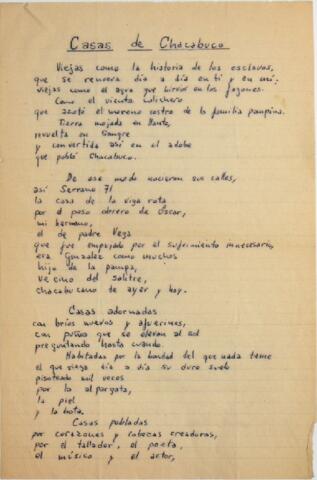 Casas de Chacabuco
Viejas como la historia de los esclavos,
que se renueva día a día en ti y en mí.
viejas como el agua que hirvió en los fogones.
Como el viento salitrero
que azotó el moreno rostro de la familia pampina.
Tierra mojada en llanto,
revuelta en sangre
y convertida así en el adobe
que pobló Chacabuco.
De ese modo nacieron sus calles,
así Serrano 71
la casa de la viga rota
por el peso obrero de Oscar,
mi hermano,
el de padre Vega
que fue empujado por el sufrimiento innecesario,
era González como muchos
hijo de la pampa,
vecino del salitre,
chacabucano de ayer y hoy.
Casas adornadas
con bríos nuevos y
con puños que se elevan al sol
preguntando hasta cuando.
Habitadas por la bondad del que nada teme
el que riega día a día su duro suelo
pisoteado mil veces
por la alpargata,
la piel
y la bota.
Casas pobladas
por corazones y cabezas creadoras,
por el tallador, el poeta,
el músico y el actor,